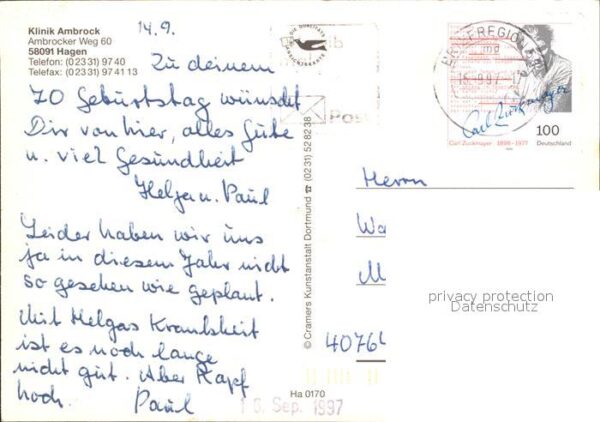 Klinik Ambrock
Ambrocker Weg 60
58091 Hagen
Telefon: (02331) 9740
Telefax: (02331) 974113
14.9.
Zu deinem
70 Geburtstag wünscht
Dir von hier, alles Gute
u. viel Gesundheit
Helja u. Paul
Leider haben wir uns
ja in diesem Jahr nicht
so gesehen wie geplant.
Mit Helgas Krankheit
ist es noch lange
nicht gut. Aber Kopf
hoch. Paul
16. Sep. 1997
Ha 0170
© Cramers Kunstanstalt Dortmund ☎ (0231) 528238
Post
BRIEFREGION
md
16.9.97-17
Carl Zuckmayer
100
Carl Zuckmayer 1896-1977
Deutschland
Herrn
Wa
M
40764
privacy protection
Datenschutz